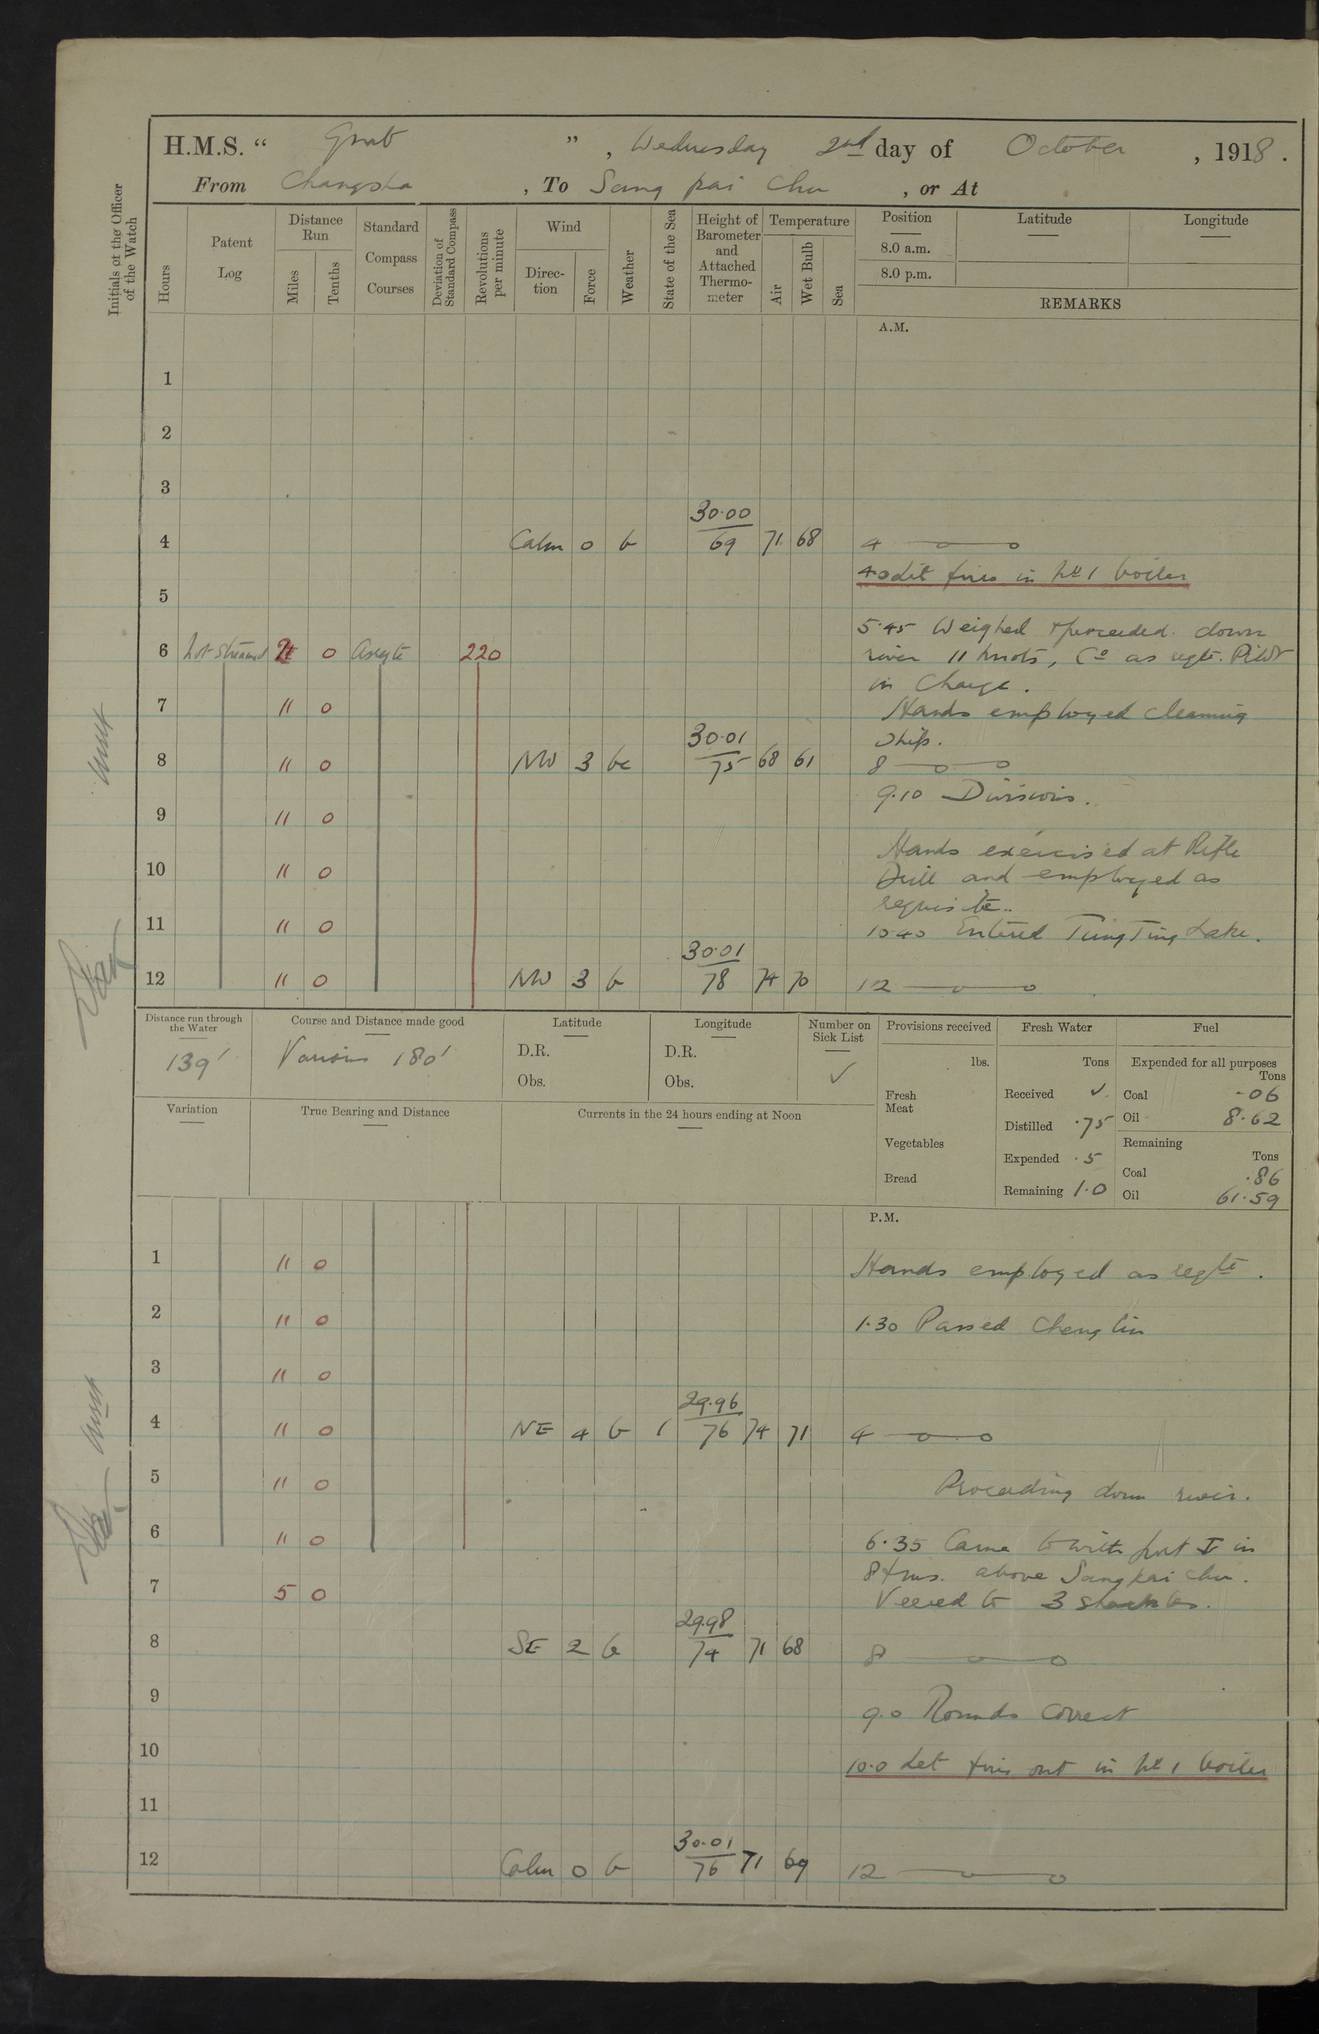 H.M.S. “ Gnat ”, Wednesday 2nd day of October, 1918.
From Changsha, To Sang pai Chu, or At
Initials of the Officer of the Watch
Hours
Patent Log
Distance Run
Miles
Tenths
Standard Compass Courses
Deviation of Standard Compass
Revolutions per minute
Wind
Direction
Force
Weather
State of the Sea
Height of Barometer and Attached Thermometer
Temperature
Air
Wet Bulb
Sea
Position
8.0 a.m.
8.0 p.m.
Latitude
Longitude
REMARKS
A.M.
1
2
3
4 Calm 0 b 30.00 69 71 68 4
4.0 Lit fires in No 1 boiler
5
5.45 Weighed & proceeded down
6 Not Streamed 0 As reqte 220 river 11 knots, Co as reqte. Pilot
in Charge.
7 11 0 Hands employed cleaning
Ship.
8 11 0 NW 3 bc 30.01 75 68 61 8
9.10 Divisions.
9 11 0
Hands exercised at Rifle
10 11 0 Drill and employed as
requisite..
11 11 0 10.40 Entered Tung Ting Lake.
12 11 0 NW 3 b 30.01 78 74 70 12
Distance run through the Water
139'
Course and Distance made good
Various 180'
Latitude
D.R.
Obs.
Longitude
D.R.
Obs.
Number on Sick List
✓
Provisions received
lbs.
Fresh Meat
Vegetables
Bread
Fresh Water
Tons
Received ✓
Distilled .75
Expended .5
Remaining 1.0
Fuel
Expended for all purposes
Tons
Coal .06
Oil 8.62
Remaining
Tons
Coal .86
Oil 61.59
Variation
True Bearing and Distance
Currents in the 24 hours ending at Noon
P.M.
1 11 0 Hands employed as reqte.
2 11 0 1.30 Passed Chenglin
3 11 0
4 11 0 NE 4 b 1 29.96 76 74 71 4
5 11 0 Proceeding down river.
6 11 0 6.35 Came to with port in
8 fms. above Sangpai chu.
7 5 0 Veered to 3 shackles.
8 SE 2 b 29.98 74 71 68 8
9 9.0 Rounds correct
10 10.0 Let fires out in No 1 boiler
11
12 Calm 0 b 30.01 76 71 69 12